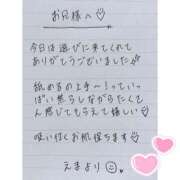 お兄様へ♡
今日は遊びに来てくれて
ありがとうございました
舐めるの上手〜！っていっ
ぱい焦らしながらたくさ
ん感じてもらえて嬉しい♡
吸い付くお肌保ちます♡
えまより